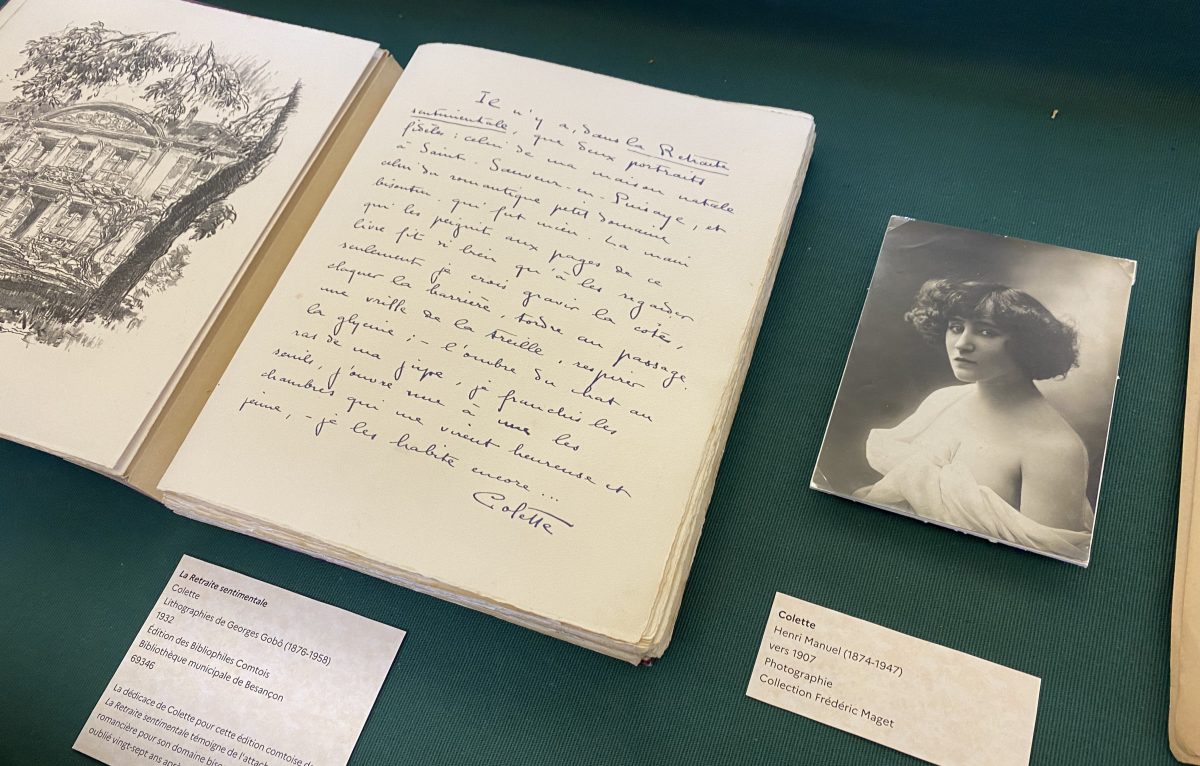 Il n'y a, dans la Retraite
sentimentale, que deux portraits
fidèles : celui de ma maison natale
à Saint-Sauveur-en-Puisaye, et
celui du romantique petit domaine
bisontin qui fut mien. La main
qui les peignit aux pages de ce
livre fit si bien qu'à les regarder
seulement je crois gravir la côte,
claquer la barrière, tordre au passage
une vrille de la treille, respirer
la glycine ; – l'ombre du chat au
ras de ma jupe, je franchis les
seuils, j'ouvre une à une les
chambres qui me virent heureuse et
jeune, – je les habite encore...
Colette
La Retraite sentimentale
Colette
Lithographies de Georges Gobô (1876-1958)
1932
Edition des Bibliophiles Comtois
Bibliothèque municipale de Besançon
69346
La dédicace de Colette pour cette édition comtoise d
La Retraite sentimentale témoigne de l'attach
romancière pour son domaine bis
oublié vingt-sept ans apr
Colette
Henri Manuel (1874-1947)
vers 1907
Photographie
Collection Frédéric Maget